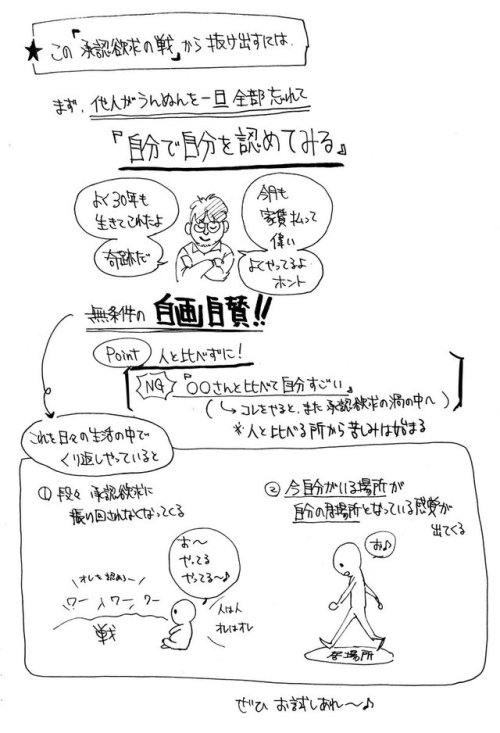 ★この「承認欲求の戦」から抜け出すには、
まず、他人がうんぬんを一旦全部忘れて
『自分で自分を認めてみる』
よく30年も
生きてこれたよ
奇跡だ
今月も
家賃払って
偉い
よくやってるよ
ホント
無条件の自画自賛!!
Point 人と比べずに!
NG 『○○さんと比べて自分すごい』
(↳コレをやると、また承認欲求の渦の中へ)
*人と比べる所から苦しみは始まる
これを日々の生活の中で
くり返しやっていると
① 段々承認欲求に
振り回されなくなってくる
お〜
やってる
やってる〜♪
オレを認めろー
ワー ワー ワー
戦
人は人
オレはオレ
② 今自分がいる場所が
自分の居場所となっている感覚が
出てくる
お♪
居場所
ぜひ お試しあれ〜♪